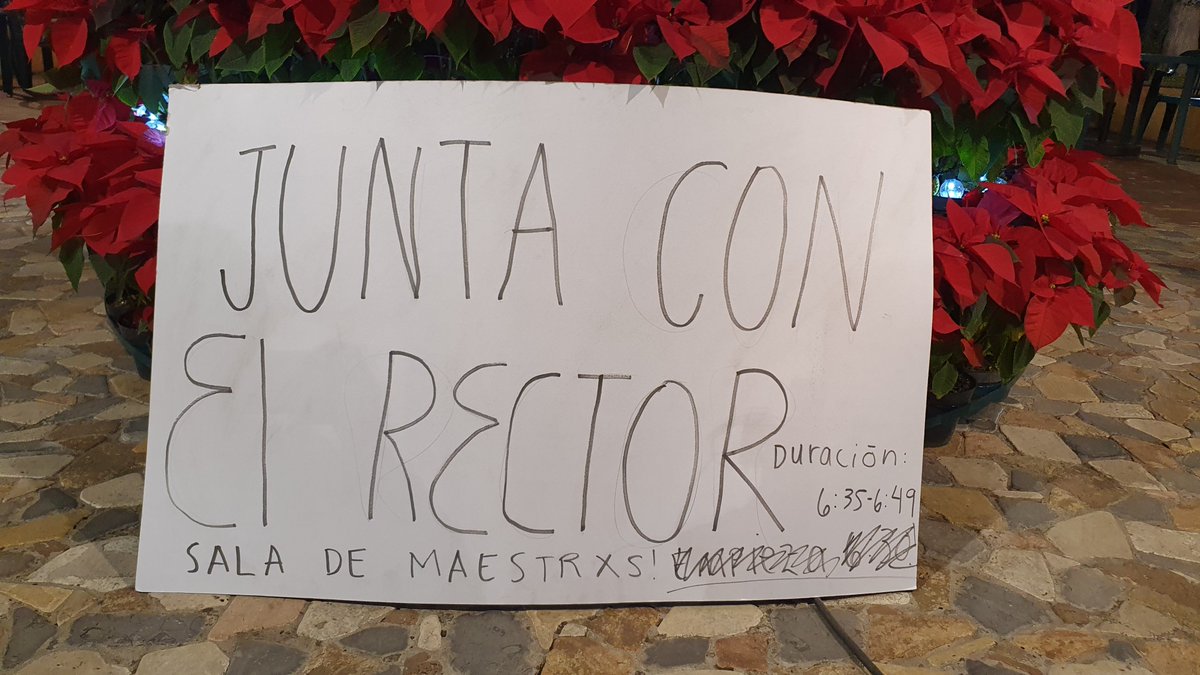 JUNTA CON
El RECTOR
Duración:
6:35-6:49
SALA DE MAESTRXS!